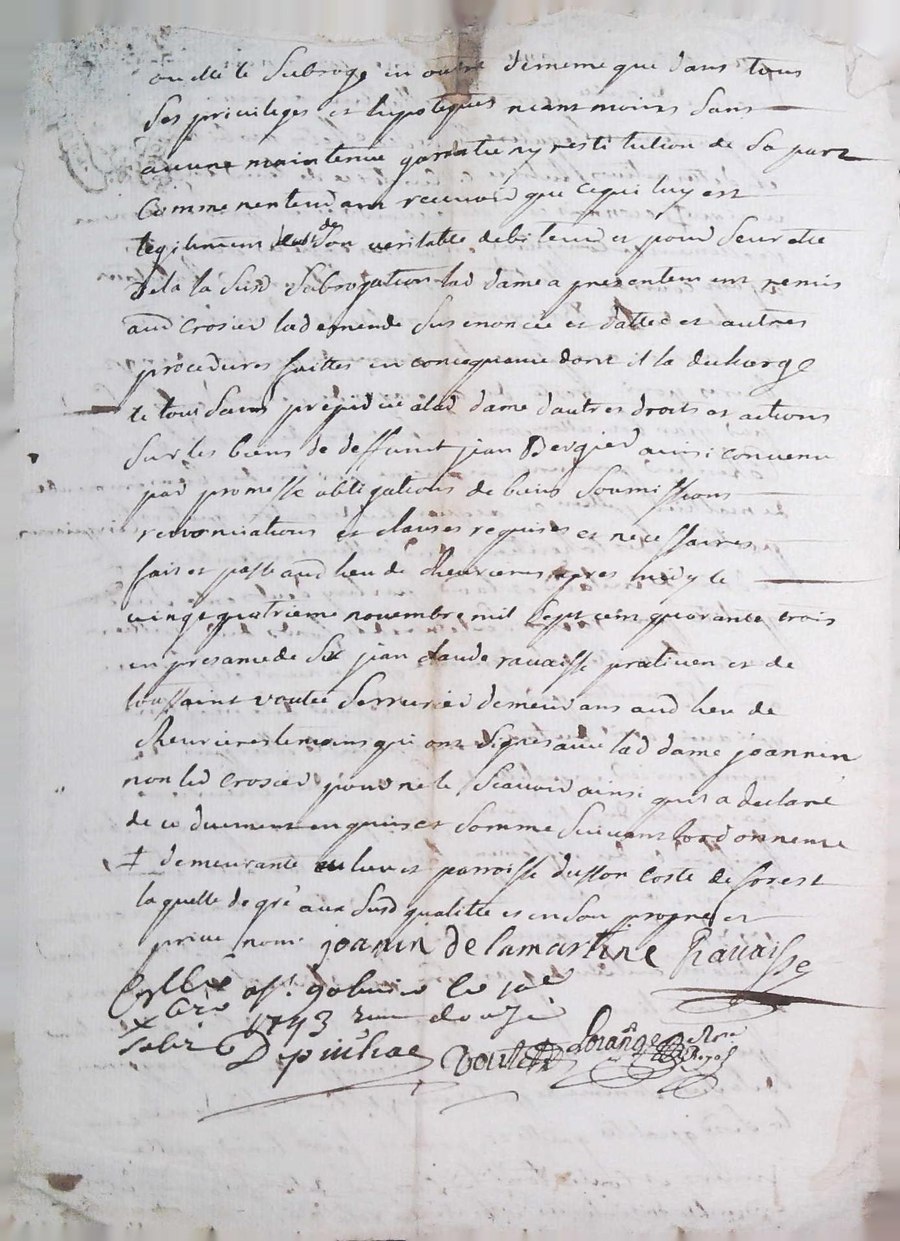 le subroge en outre dememe que dans tous
ses privileges et hipoteques neant moins sans
aucune maintenue garentie ny restitution de sa part
comme nentendant recevoir que cequi luy est
legitimement deub de son veritable debiteur et pour seurette
dela la susd subrogation lad dame a presentement remis
aud crosier lademende susenoncée et dattée et autres
procedures faittes en consequance dont il la decharge
le tout sans prejudice alad dame dautres droits et actions
sur les biens de deffunt jean Bergier ainsi convenu
par promesse obligations de biens soumissions
renonciations et clauses requises et necessaires
fait et passé aud lieu de chevrieres apres midy le
vingt quatrieme novembre mil sept cent quarante trois
en presance de sr jean claude ravaisse praticien et de
toussaint voutée serrurier demeurans aud lieu de
chevrieres temoins qui ont signés avec lad dame joannin
non led crosier pour ne le scavoir ainsi quil a declaré
de ce duement enquis et sommé suivant lordonnence
‡ demeurante au lieu et parroisse dusson coste de forest
laquelle de gré aux susd qualités et en son propre et
privé nom joanin de lamartine Ravaisse
1743 douze
Depinhac voute Lorange Rone Royal